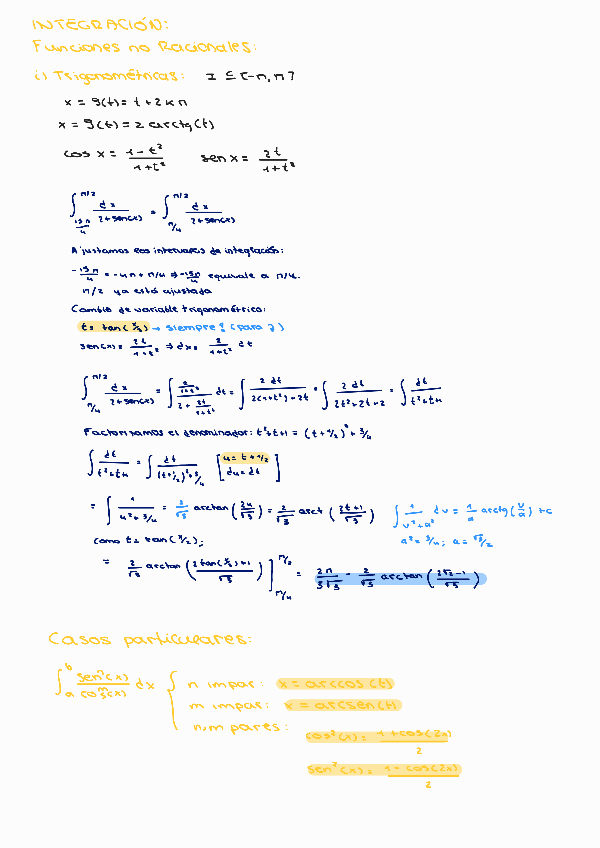 INTEGRACIÓN:
Funciones no Racionales:
i) Trigonométricas: I ⊆ [-π, π]
x = g(t) = t + 2kπ
x = g(t) = 2 arctg(t)
cos x = (1-t²)/(1+t²) sen x = 2t/(1+t²)
∫_{15π/4}^{π/2} dx/(2+sen(x)) = ∫_{π/4}^{π/2} dx/(2+sen(x))
Ajustamos los intervalos de integración:
-15π/4 = -4π + π/4 ⇒ -15π/4 equivale a π/4.
π/2 ya está ajustada
Cambio de variable trigonométrico:
t = tan(x/2) → siempre!! (para )
sen(x) = 2t/(1+t²) ⇒ dx = 2/(1+t²) dt
∫_{π/4}^{π/2} dx/(2+sen(x)) = ∫ (2/(1+t²))/(2 + 2t/(1+t²)) dt = ∫ 2 dt/(2(1+t²)+2t) = ∫ 2 dt/(2t²+2t+2) = ∫ dt/(t²+t+1)
Factorizamos el denominador: t²+t+1 = (t+1/2)² + 3/4
∫ dt/(t²+t+1) = ∫ dt/((t+1/2)²+3/4) [u = t+1/2
du = dt]
= ∫ 1/(u²+3/4) = 2/√3 arctan(2u/√3) = 2/√3 arct(2t+1/√3) ∫ 1/(v²+a²) dv = 1/a arctg(v/a) + c
como t = tan(x/2); a² = 3/4; a = √3/2
= 2/√3 arctan((2tan(x/2)+1)/√3)]_{π/4}^{π/2} = 2π/3√3 - 2/√3 arctan((2√2-1)/√3)
Casos particulares:
∫_a^b senⁿ(x)/cosᵐ(x) dx { n impar: x = arccos(t)
m impar: x = arcsen(t)
n,m pares: cos²(x) = (1+cos(2x))/2
sen²(x) = (1-cos(2x))/2